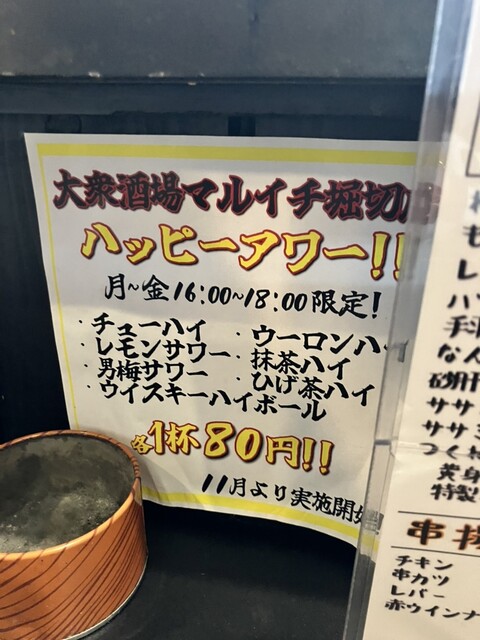 大衆酒場マルイチ堀切
ハッピーアワー!!
月~金16:00~18:00限定!
・チューハイ ・ウーロンハイ
・レモンサワー ・抹茶ハイ
・男梅サワー ・ひげ茶ハイ
・ウイスキーハイボール
各1杯80円!!
11月より実施開始
レ
ハツ
なん
砂肝
ササ
ササミ
つくね
黄身
特製
串揚
チキン
串カツ
レバー
赤ウインナ